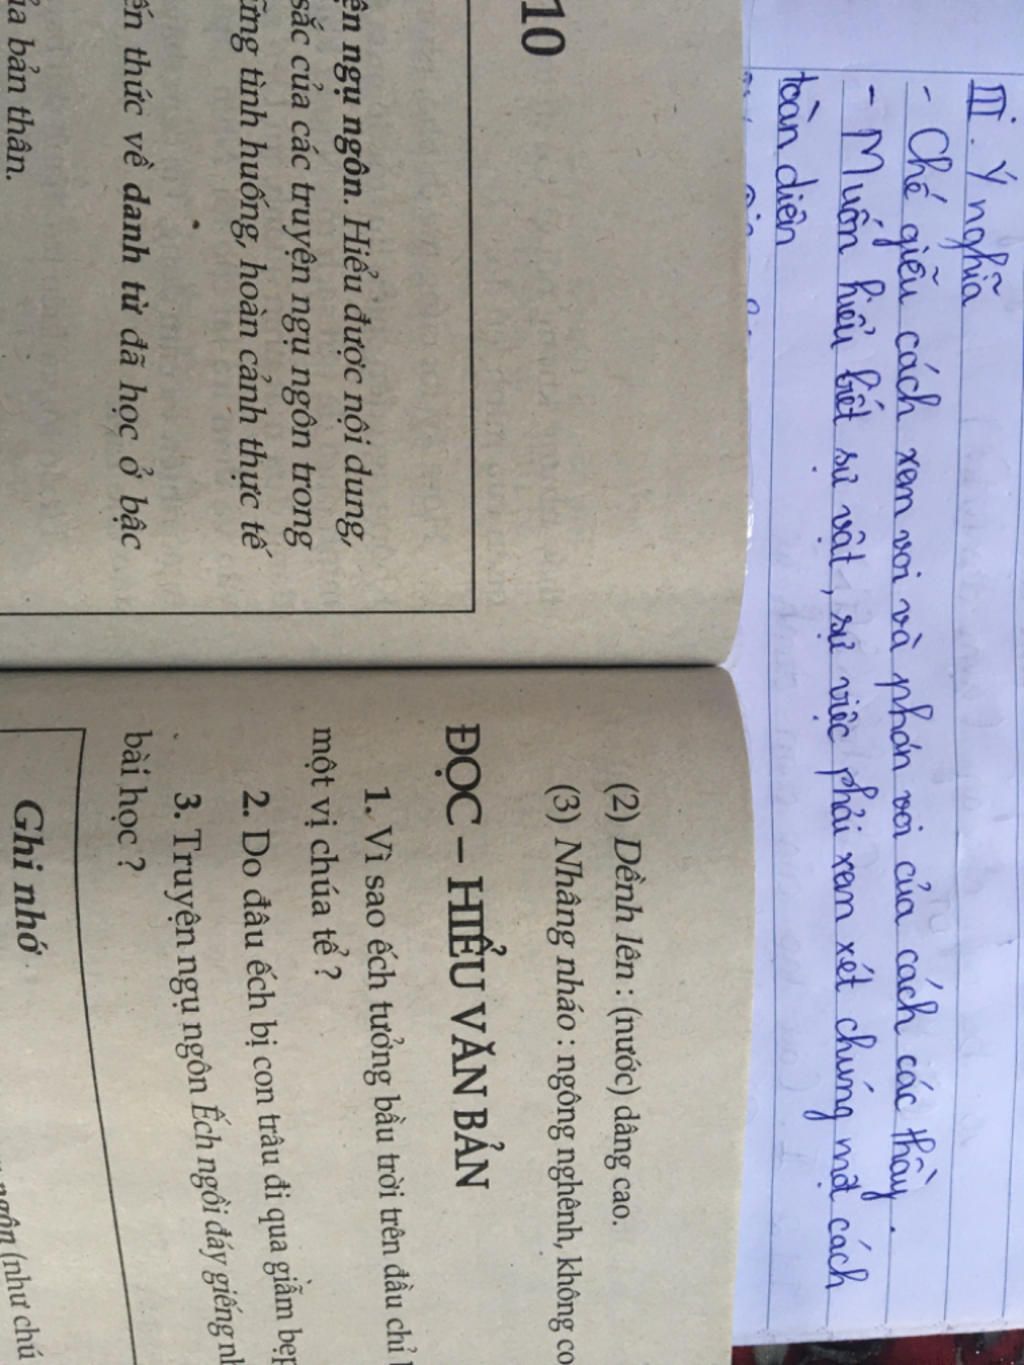 III. Ý nghĩa
- Chế giễu cách xem voi và phán voi của cách các thầy.
- Muốn hiểu biết sự vật, sự việc phải xem xét chúng một cách
toàn diện
10
ện ngụ ngôn. Hiểu được nội dung,
sắc của các truyện ngụ ngôn trong
ững tình huống, hoàn cảnh thực tế
ến thức về danh từ đã học ở bậc
ủa bản thân.
(2) Dềnh lên : (nước) dâng cao.
(3) Nhâng nháo : ngông nghênh, không co
ĐỌC – HIỂU VĂN BẢN
1. Vì sao ếch tưởng bầu trời trên đầu chỉ
một vị chúa tể ?
2. Do đâu ếch bị con trâu đi qua giẫm bẹp
3. Truyện ngụ ngôn Ếch ngồi đáy giếng nh
bài học ?
Ghi nhớ
ngôn (như chú